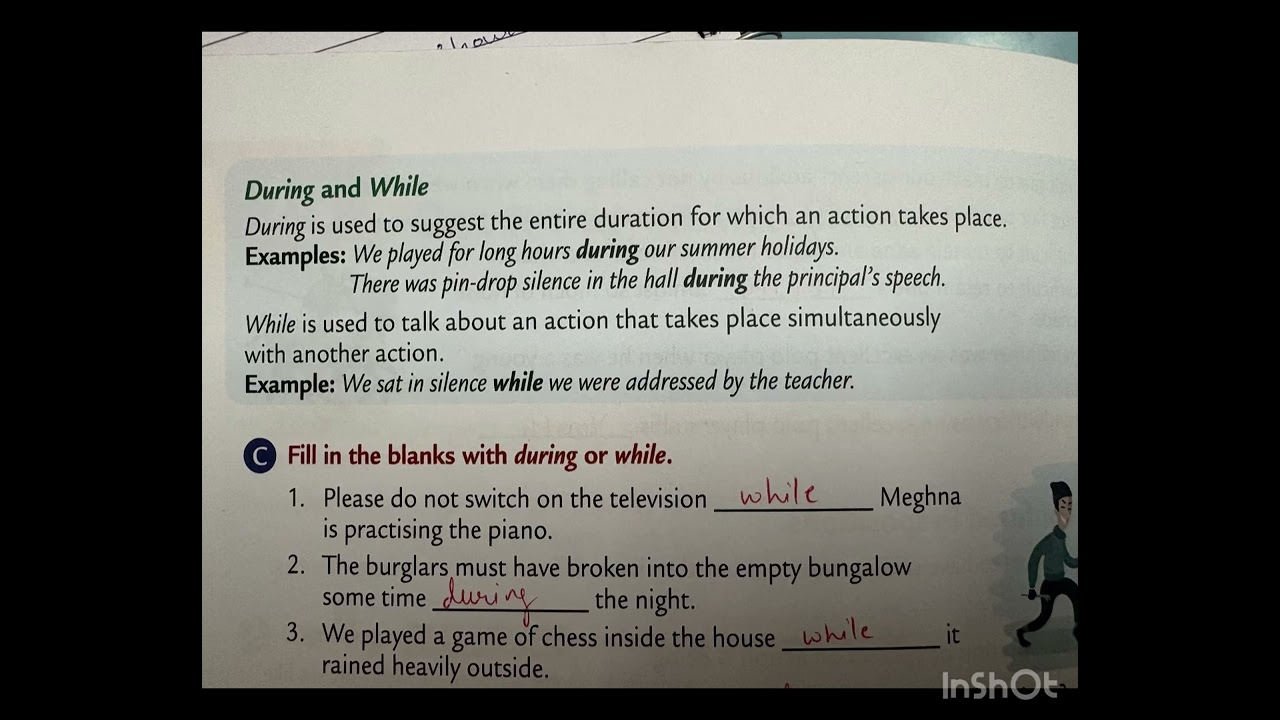 During and While
During is used to suggest the entire duration for which an action takes place.
Examples: We played for long hours during our summer holidays.
There was pin-drop silence in the hall during the principal's speech.
While is used to talk about an action that takes place simultaneously
with another action.
Example: We sat in silence while we were addressed by the teacher.
C Fill in the blanks with during or while.
1. Please do not switch on the television while Meghna
is practising the piano.
2. The burglars must have broken into the empty bungalow
some time during the night.
3. We played a game of chess inside the house while it
rained heavily outside.
InShOt